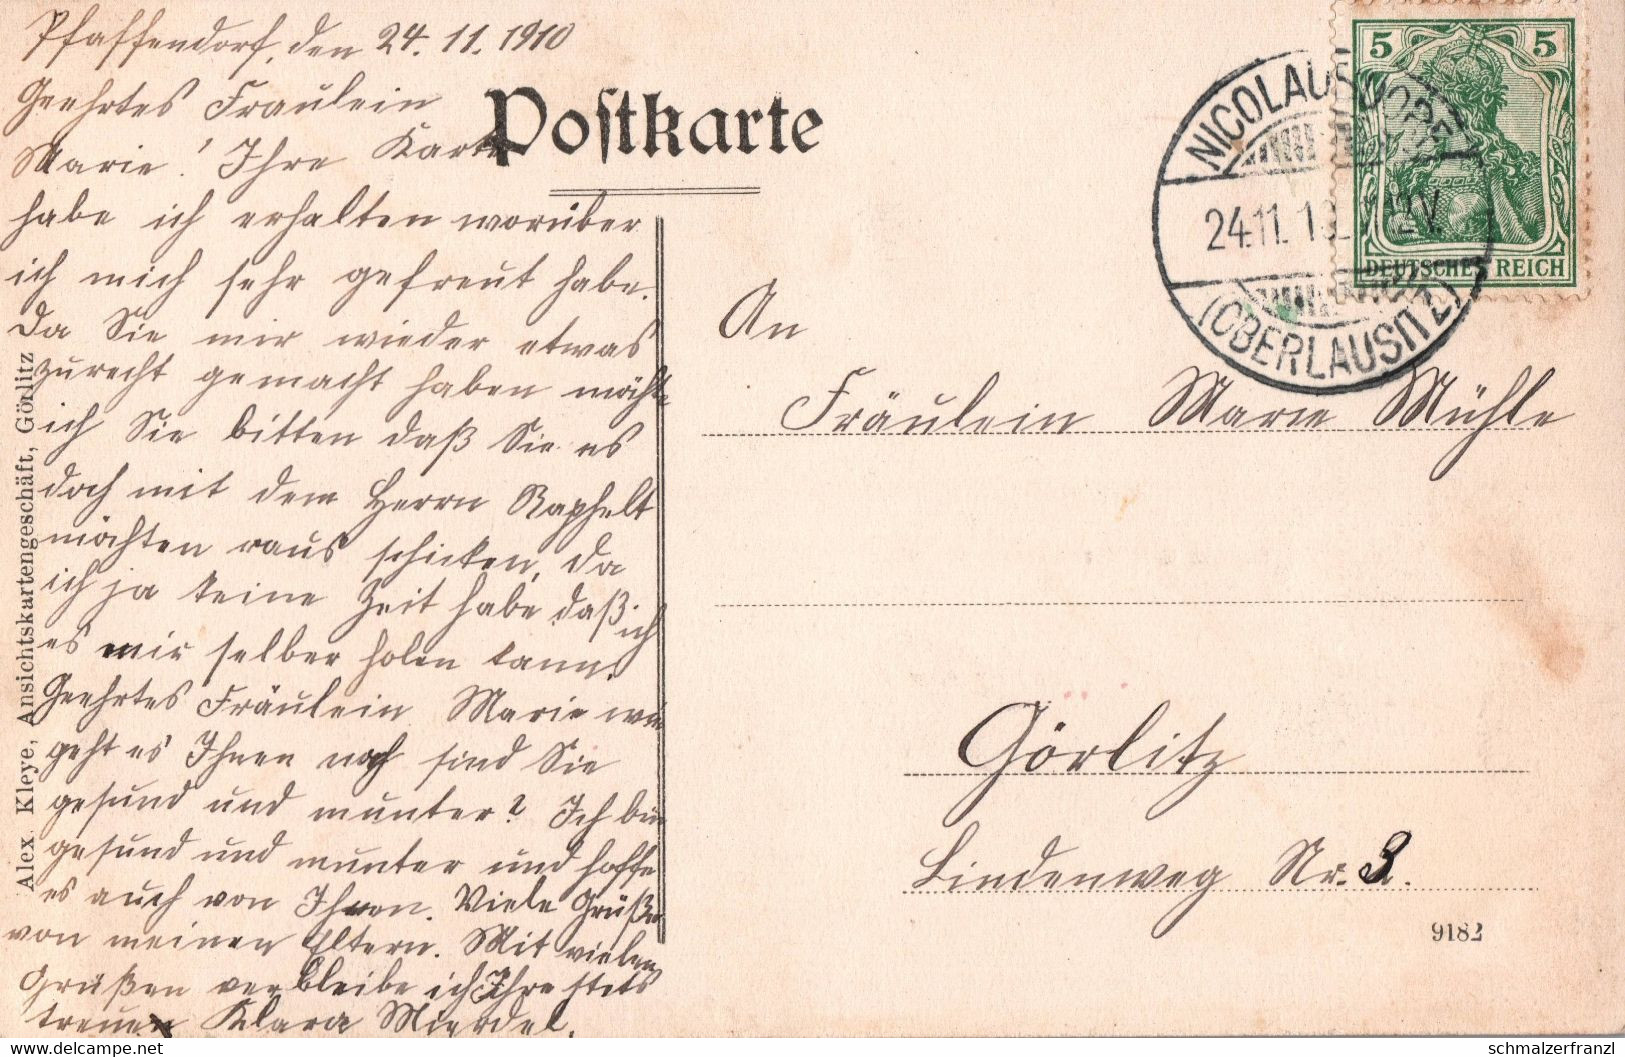 Pfaffendorf, den 24. 11. 1910
Geehrtes Fräulein
Marie! Ihre Karte
habe ich erhalten worüber
ich mich sehr gefreut habe.
Da Sie mir wieder etwas
zurecht gemacht haben möchte
ich Sie bitten daß Sie es
doch mit dem Herrn Raphelt
möchten raus schicken, da
ich ja keine Zeit habe daß ich
es mir selber holen kann.
Geehrtes Fräulein Marie wie
geht es Ihnen noch sind Sie
gesund und munter? Ich bin
gesund und munter und hoffe
es auch von Ihnen. Viele Grüße
von meinen Eltern. Mit vielen
Grüßen verbleibe ich Ihre stets
treue Klara Mierdel.
Alex Kleye, Ansichtskartengeschäft, Görlitz
Postkarte
NICOLAUSDORF
24.11.10. 11-12V.
(OBERLAUSITZ)
5 5
DEUTSCHES REICH
An
Fräulein Marie Mühle
Görlitz
Lindenweg Nr. 2.
9182
the best online collectibles marketplace
schmalzerfranzl